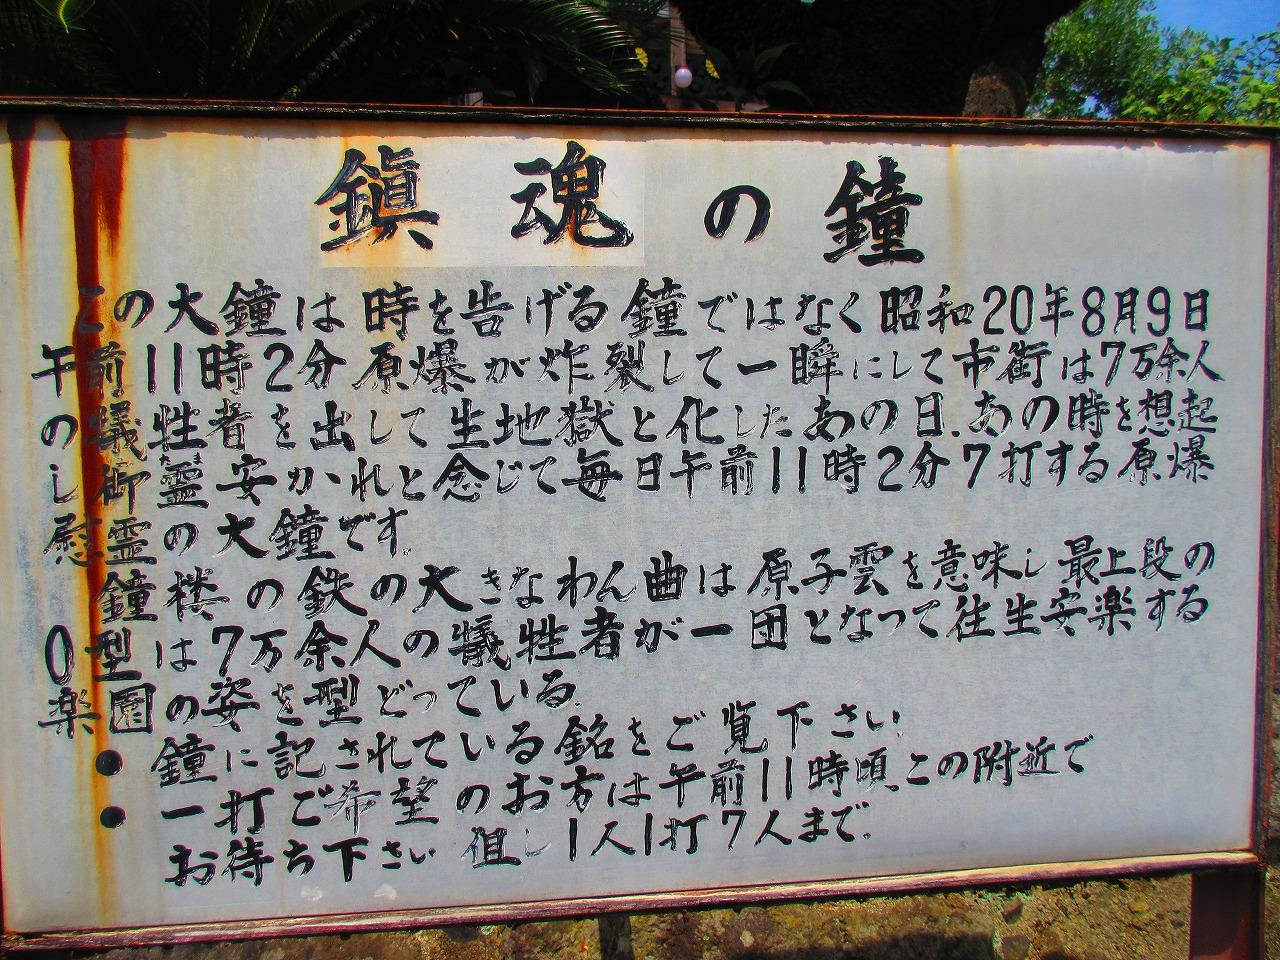 鎮魂の鐘
この大鐘は時を告げる鐘ではなく昭和20年8月9日
午前11時2分原爆が炸裂して一瞬にして市街は7万余人
の犠牲者を出して生地獄と化したあの日、あの時を想起
し御霊安かれと念じて毎日午前11時2分7打する原爆
慰霊の大鐘です。
鐘楼の鉄の大きなわん曲は原子雲を意味し最上段の
0型は7万余人の犠牲者が一団となって往生安楽する
楽園の姿を型どっている。
● 鐘に記されている銘をご覧下さい。
● 一打ご希望のお方は午前11時頃、この附近で
お待ち下さい 但し1人1打7人まで。